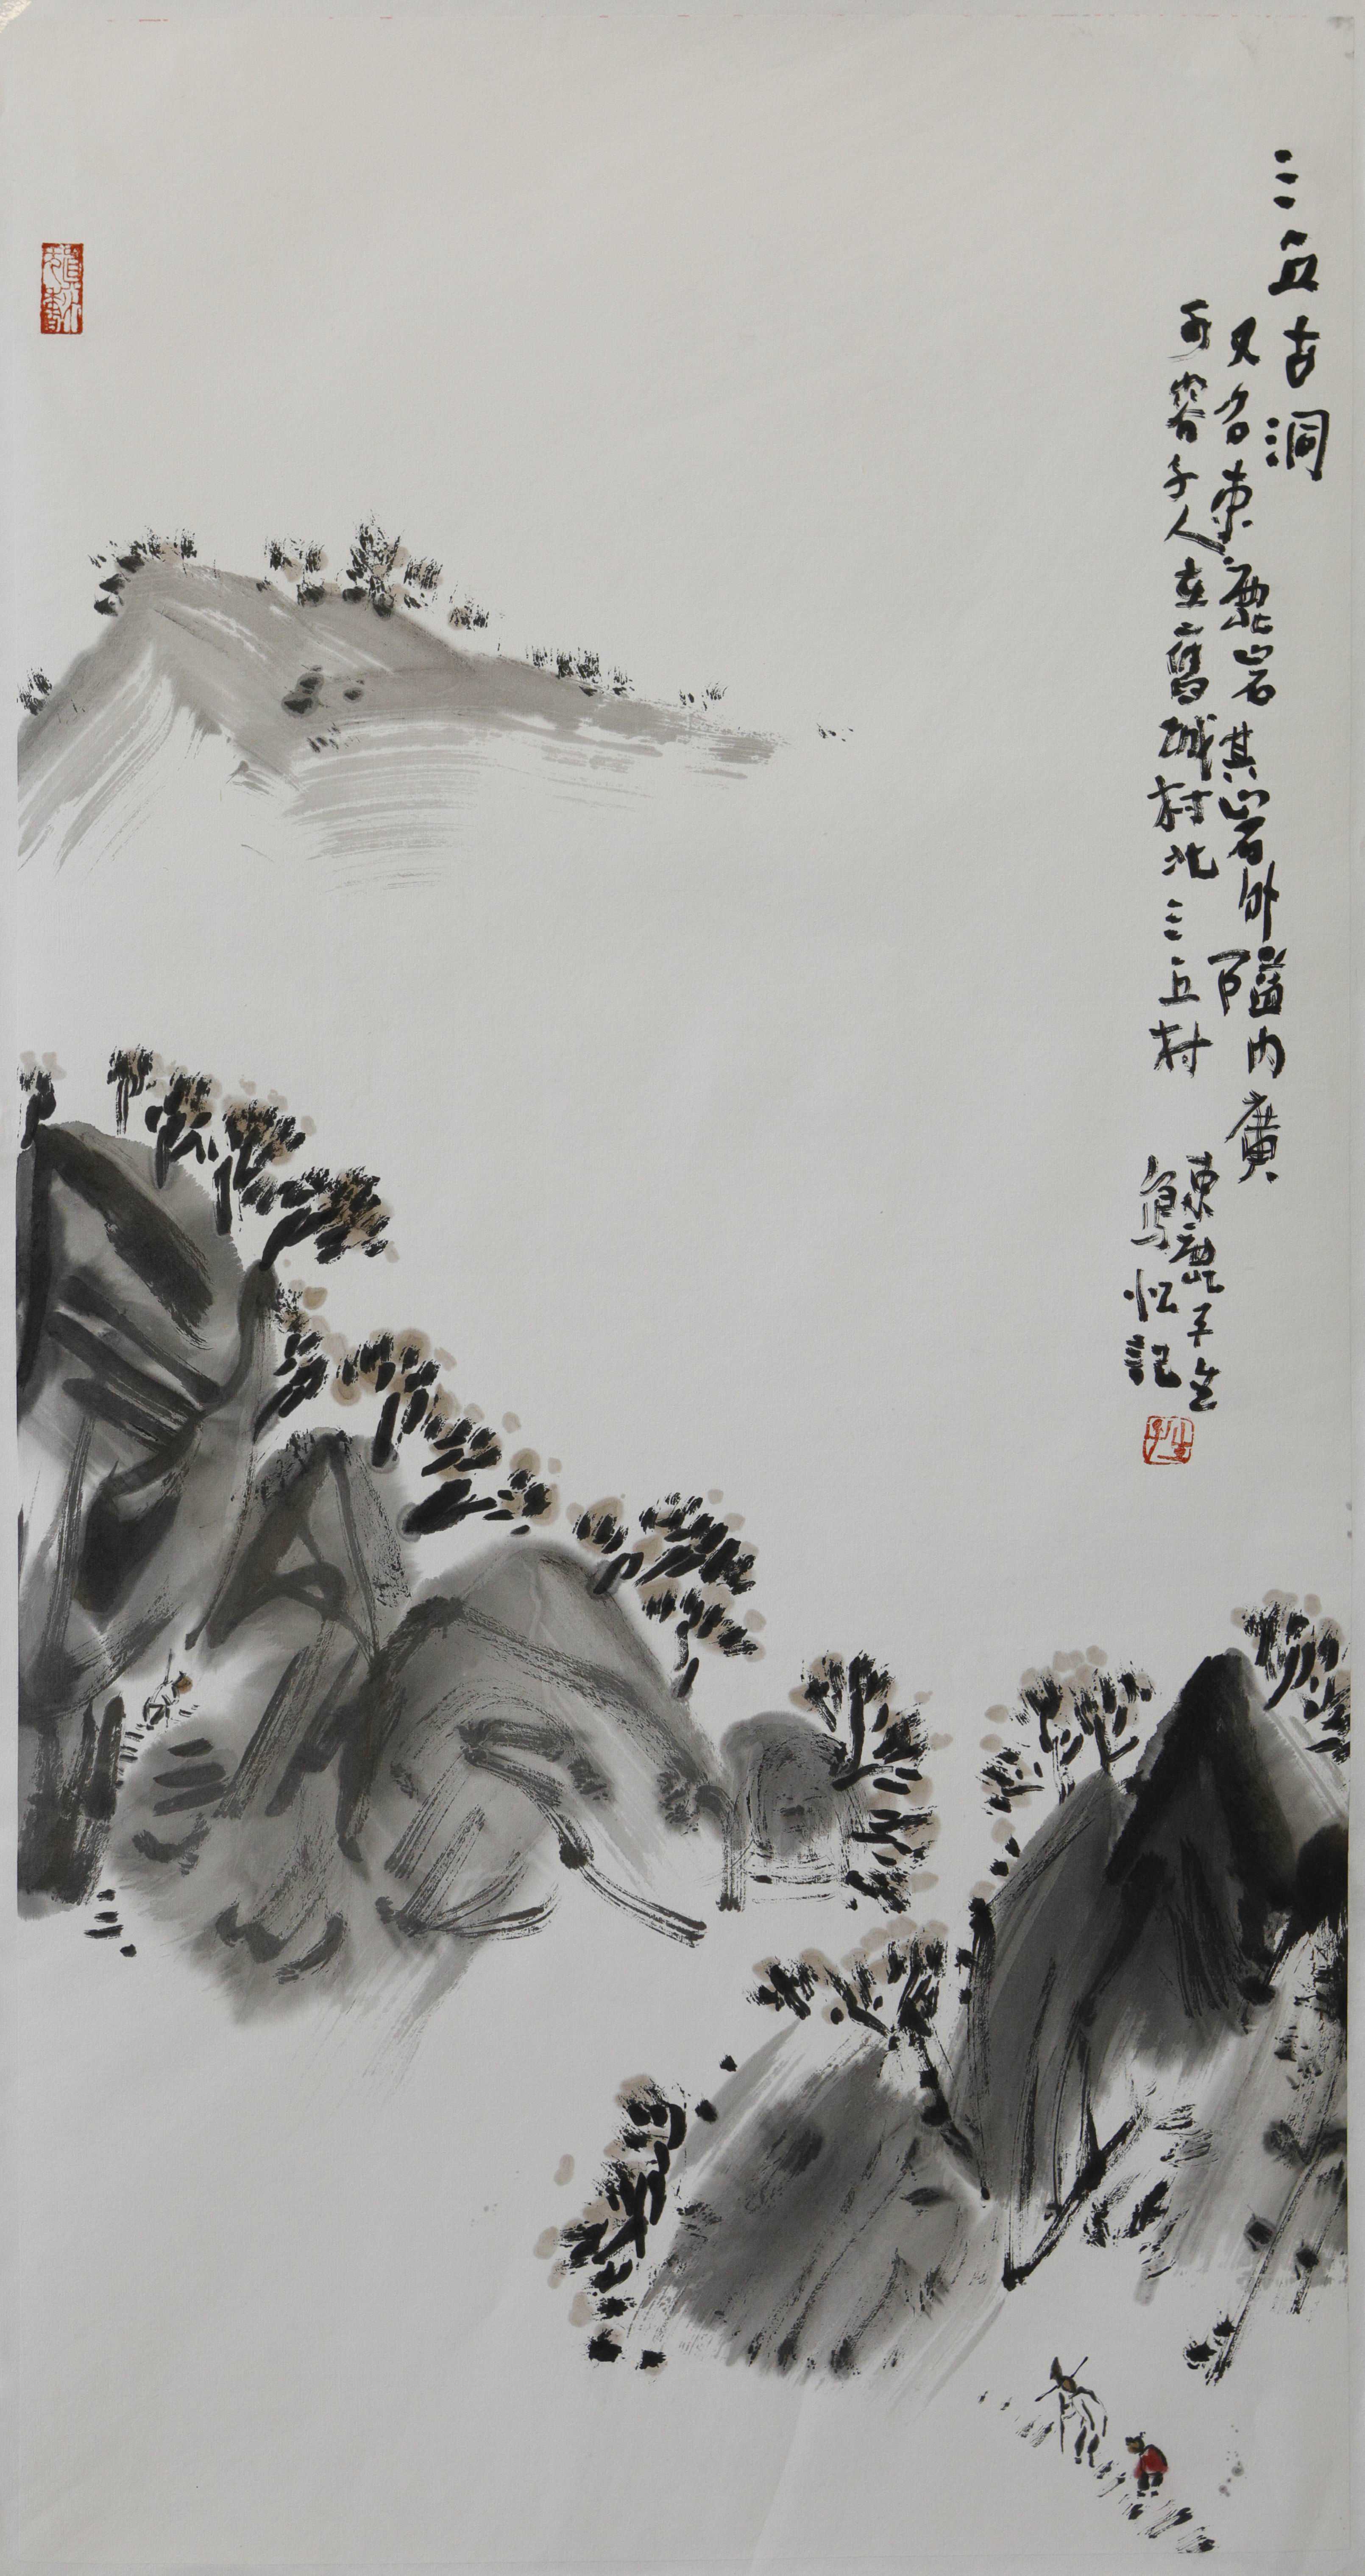 三丘古洞
又名東鹿岩其岩外隘内廣
可容千人在舊城村北三丘村
東鹿平生
記